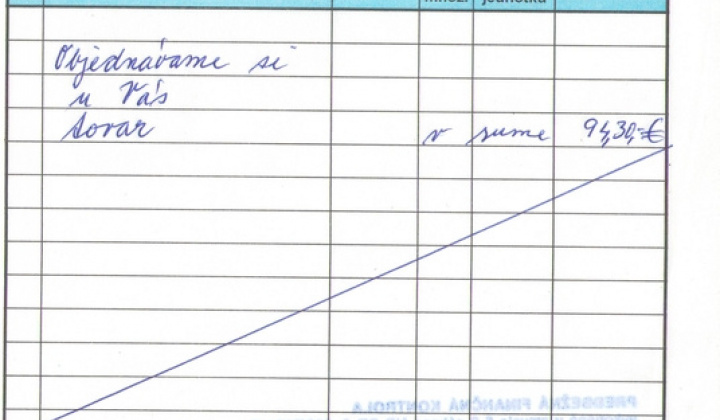 množ. jednotka
Objednávame si
u Vás
tovar v sume 94,30,-€
PREDBEŽNÁ FINANČNÁ KONTROLA